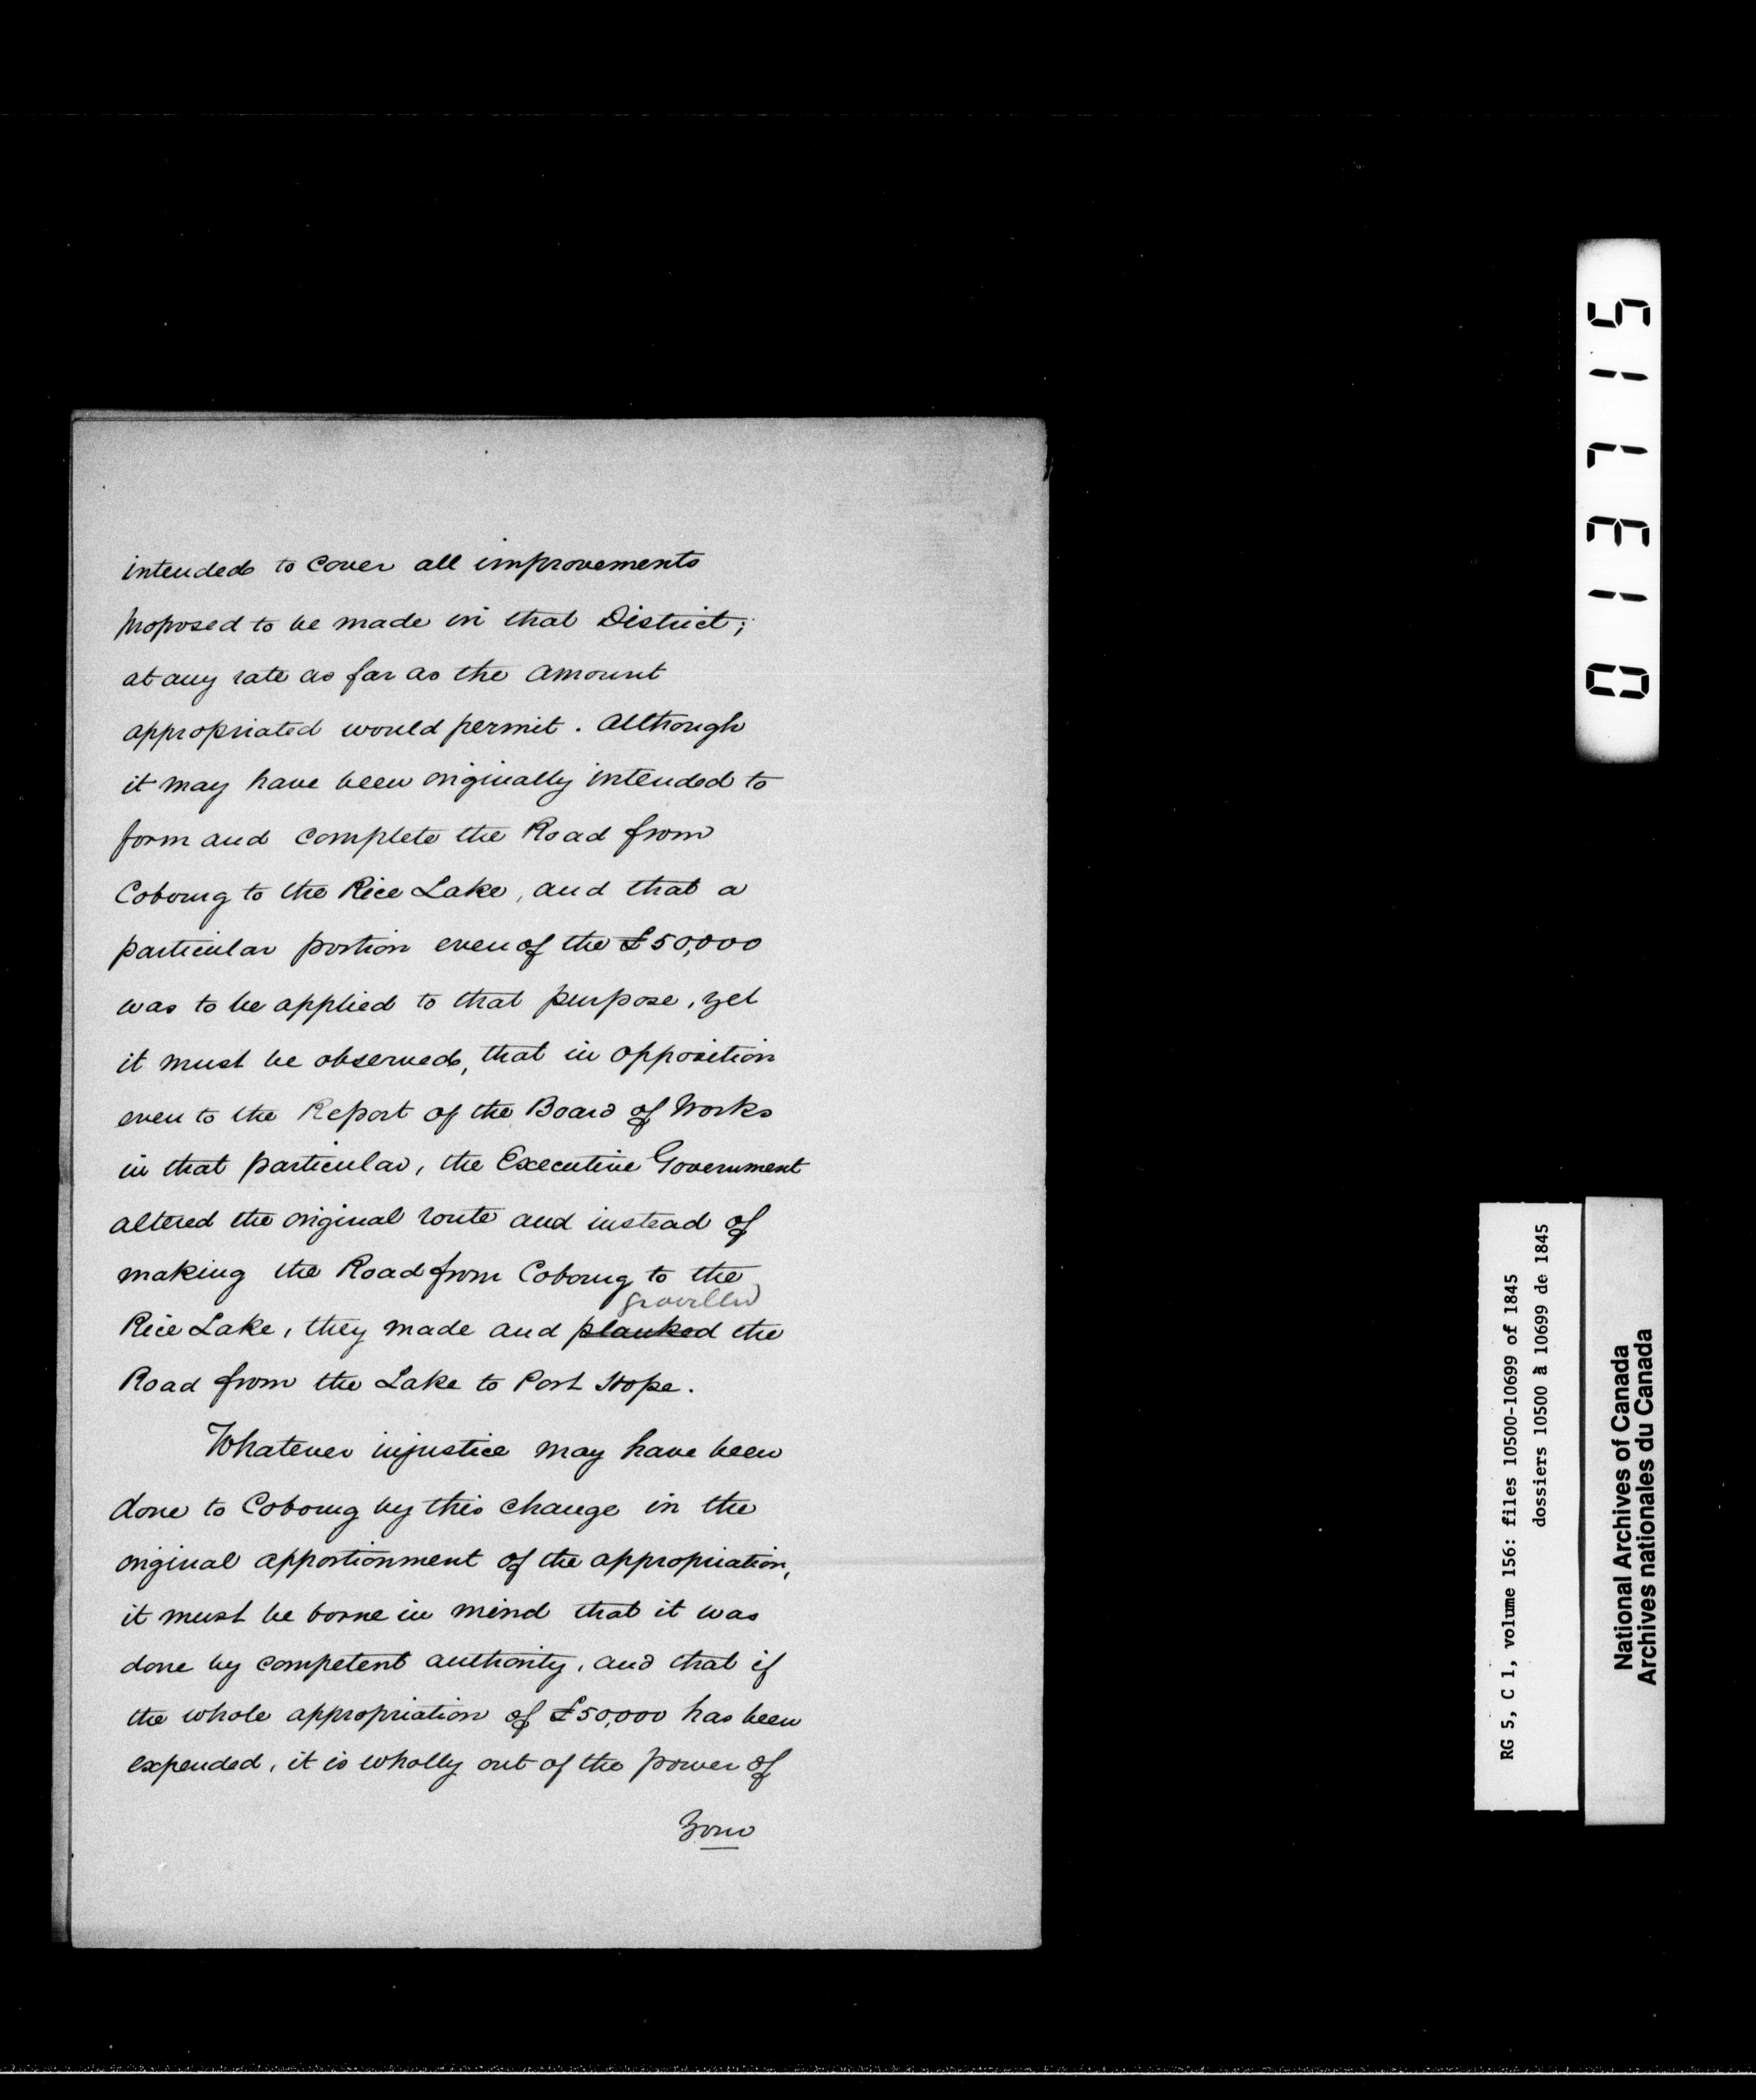 intended to cover all improvements
proposed to be made in that District;
at any rate as far as the amount
appropriated would permit. Although
it may have been originally intended to
form and complete the Road from
Cobourg to the Rice Lake, and that a
particular portion even of the £50,000
was to be applied to that purpose, yet
it must be observed, that in opposition
even to the Report of the Board of Works
in that particular, the Executive Government
altered the original route and instead of
making the Road from Cobourg to the
gravelled
Rice Lake, they made and planked the
Road from the Lake to Port Hope.
Whatever injustice may have been
done to Cobourg by this change in the
original apportionment of the appropriation,
it must be borne in mind that it was
done by competent authority, and that if
the whole appropriation of £50,000 has been
expended, it is wholly out of the power of
Your
013715
RG 5, C 1, volume 156: files 10500-10699 of 1845
dossiers 10500 à 10699 de 1845
National Archives of Canada
Archives nationales du Canada